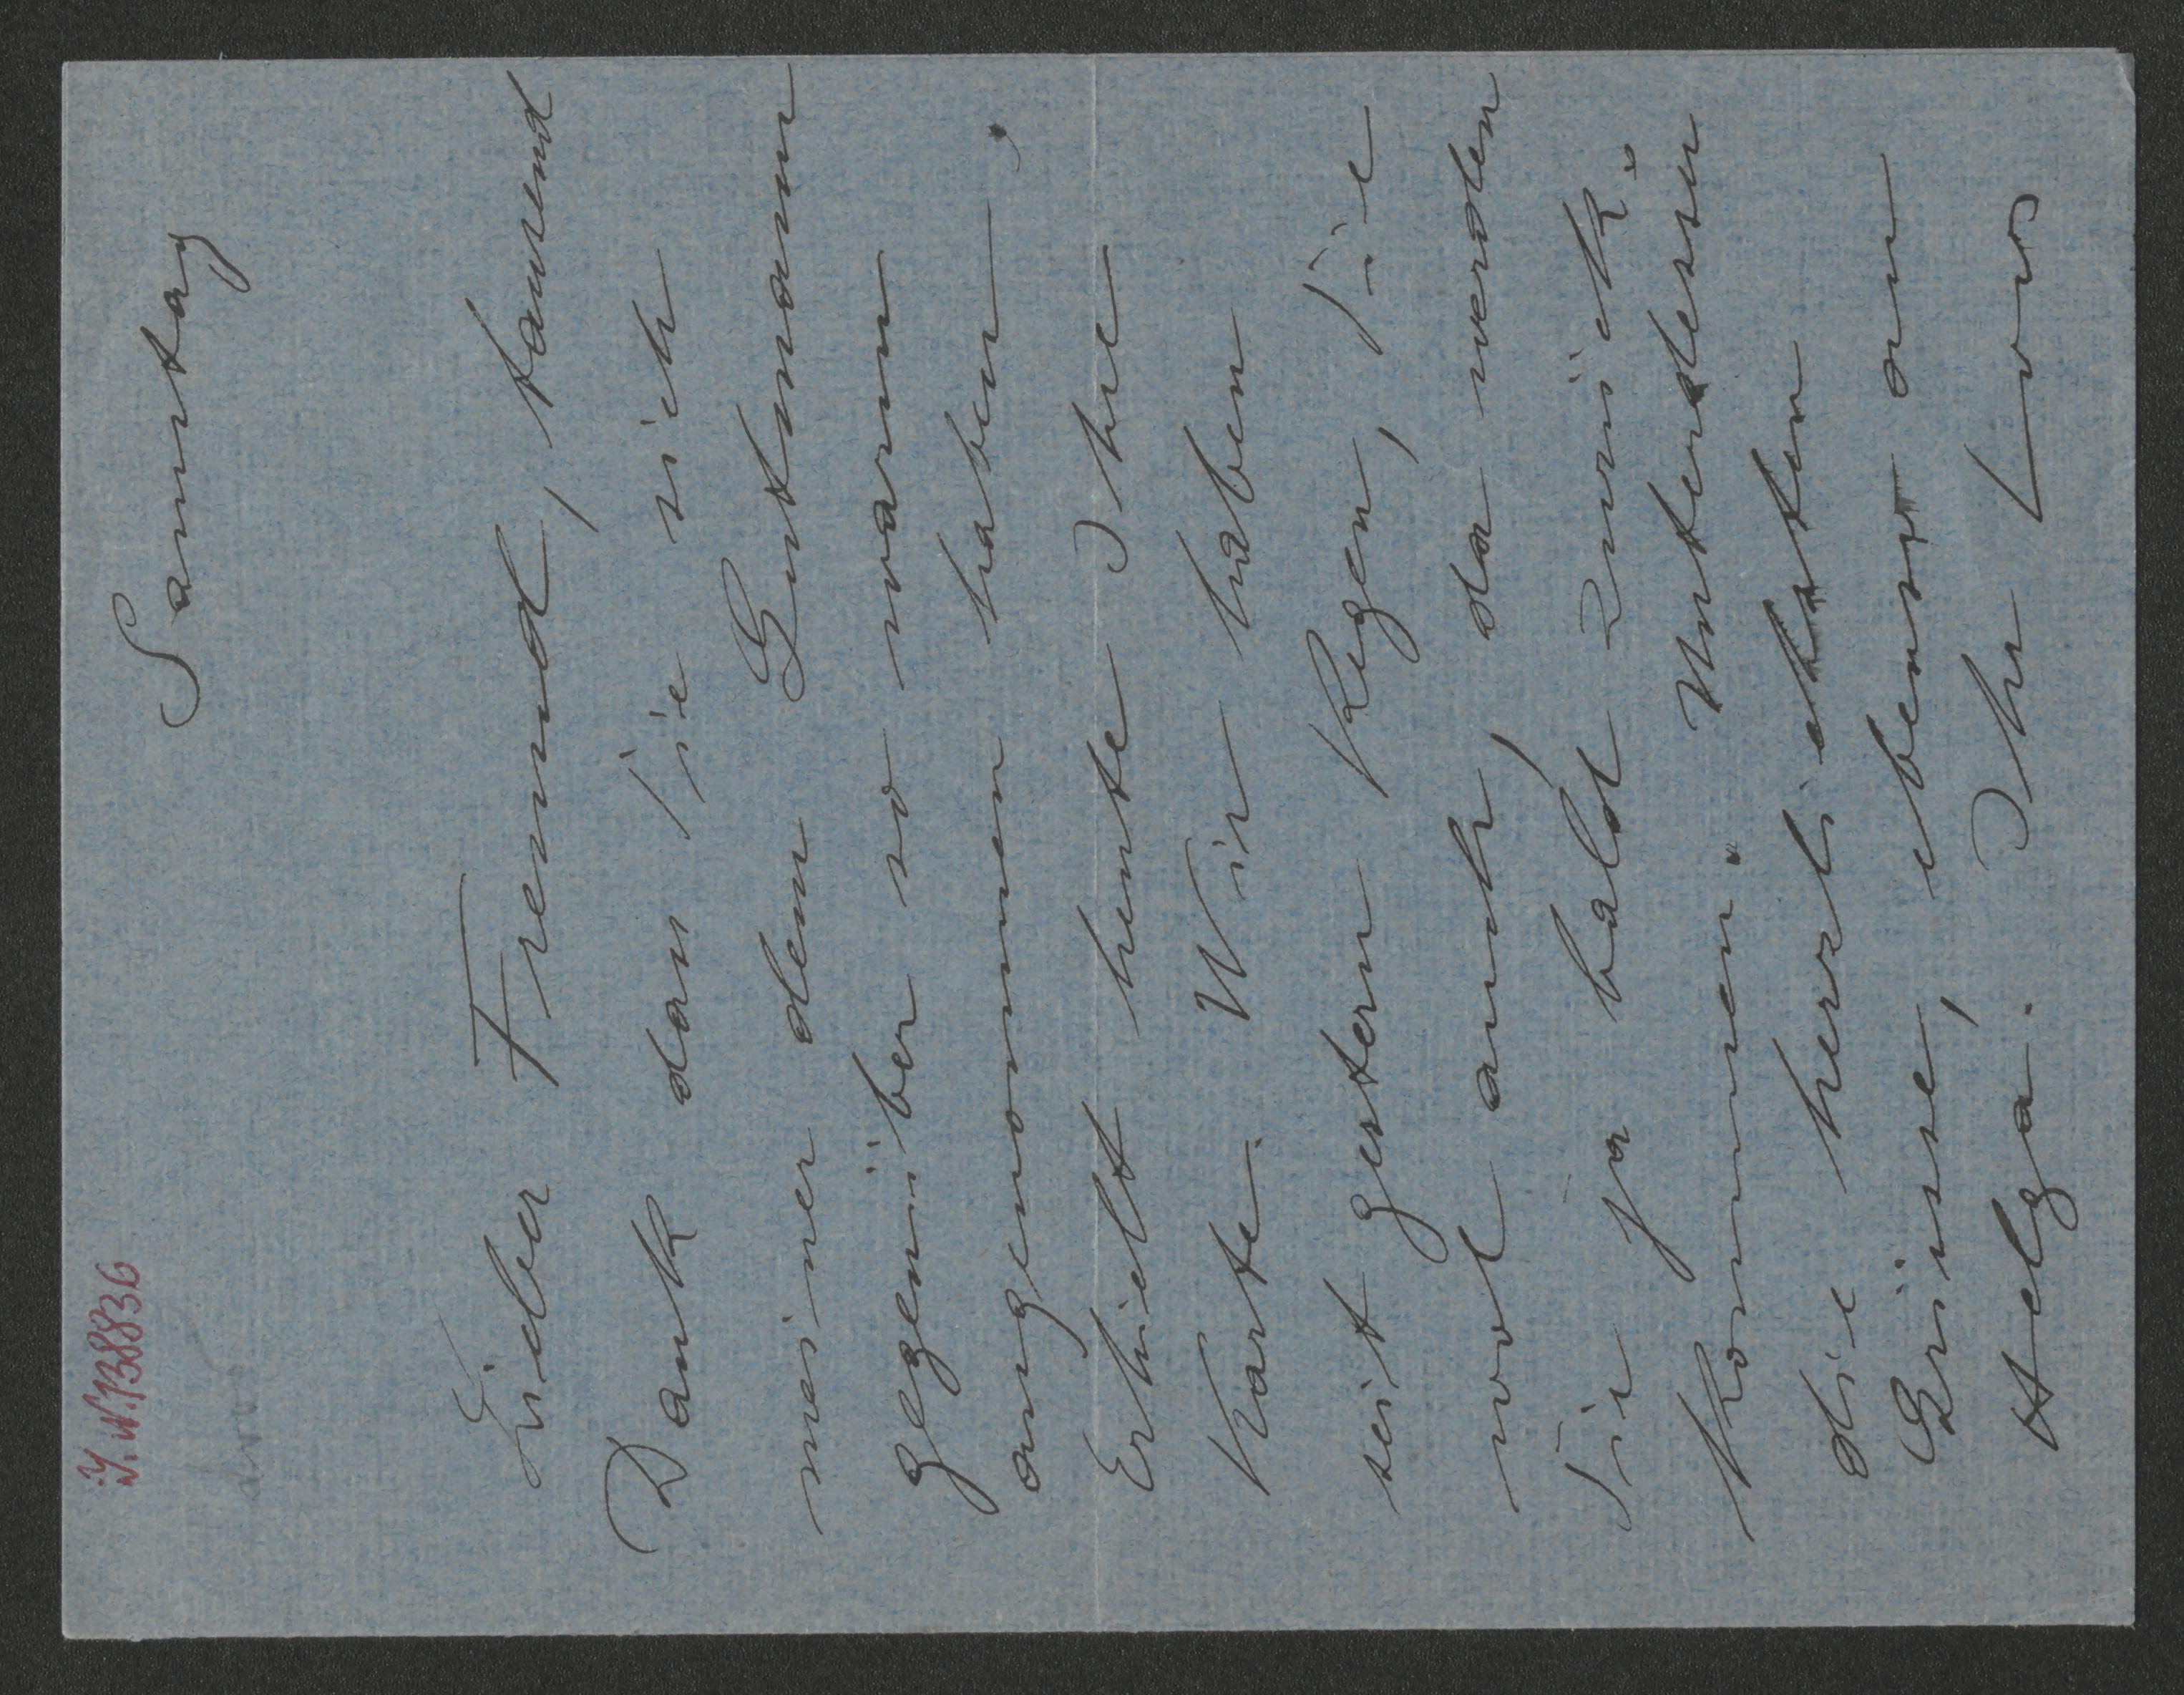 J.N. 138836
Samstag
Lieber Freund, tausend
Dank dass Sie sich
meiner dem Gutmann
gegenüber so warm
angenommen haben.
Erhielt heute Ihre
Karte. Wir haben
seit gestern Regen, Sie
wol auch, da werden
Sie ja bald zurück=
kommen. Unterdessen
die herzlichsten
Grüsse, ebenso an
Helga. Ihr Loos